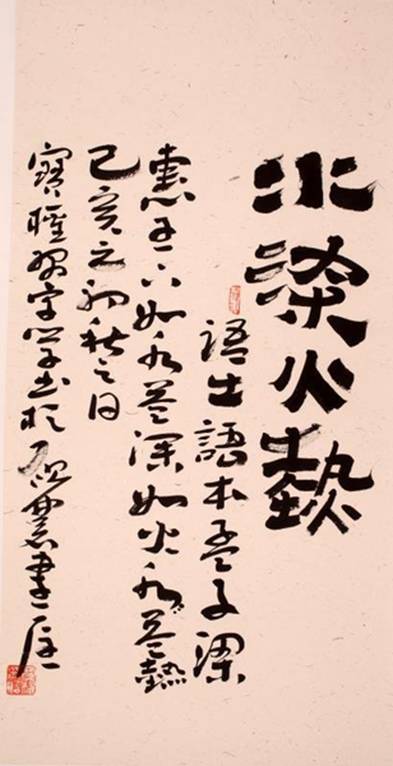 水深火熱
語出語本孟子梁
惠王下如水益深如火水益熱
己亥之初秋之日
寶權習字學書於